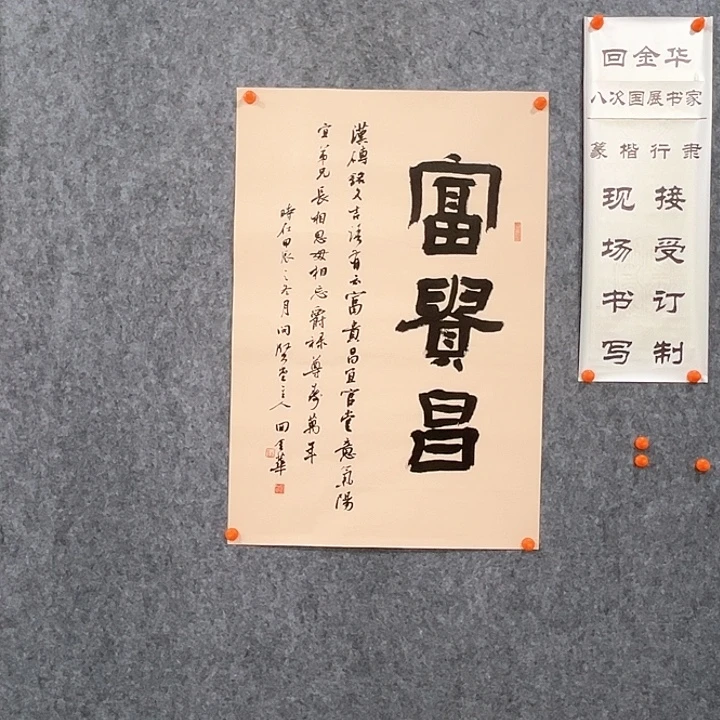 富貴昌
漢磚銘文吉語有云富貴昌宜官堂意氣陽
宜弟兄長相思毋相忘爵祿尊壽萬年
時在甲辰之冬月问賢堂主人回金華
回金华
八次国展书家
篆楷行隶
现场书写
接受订制